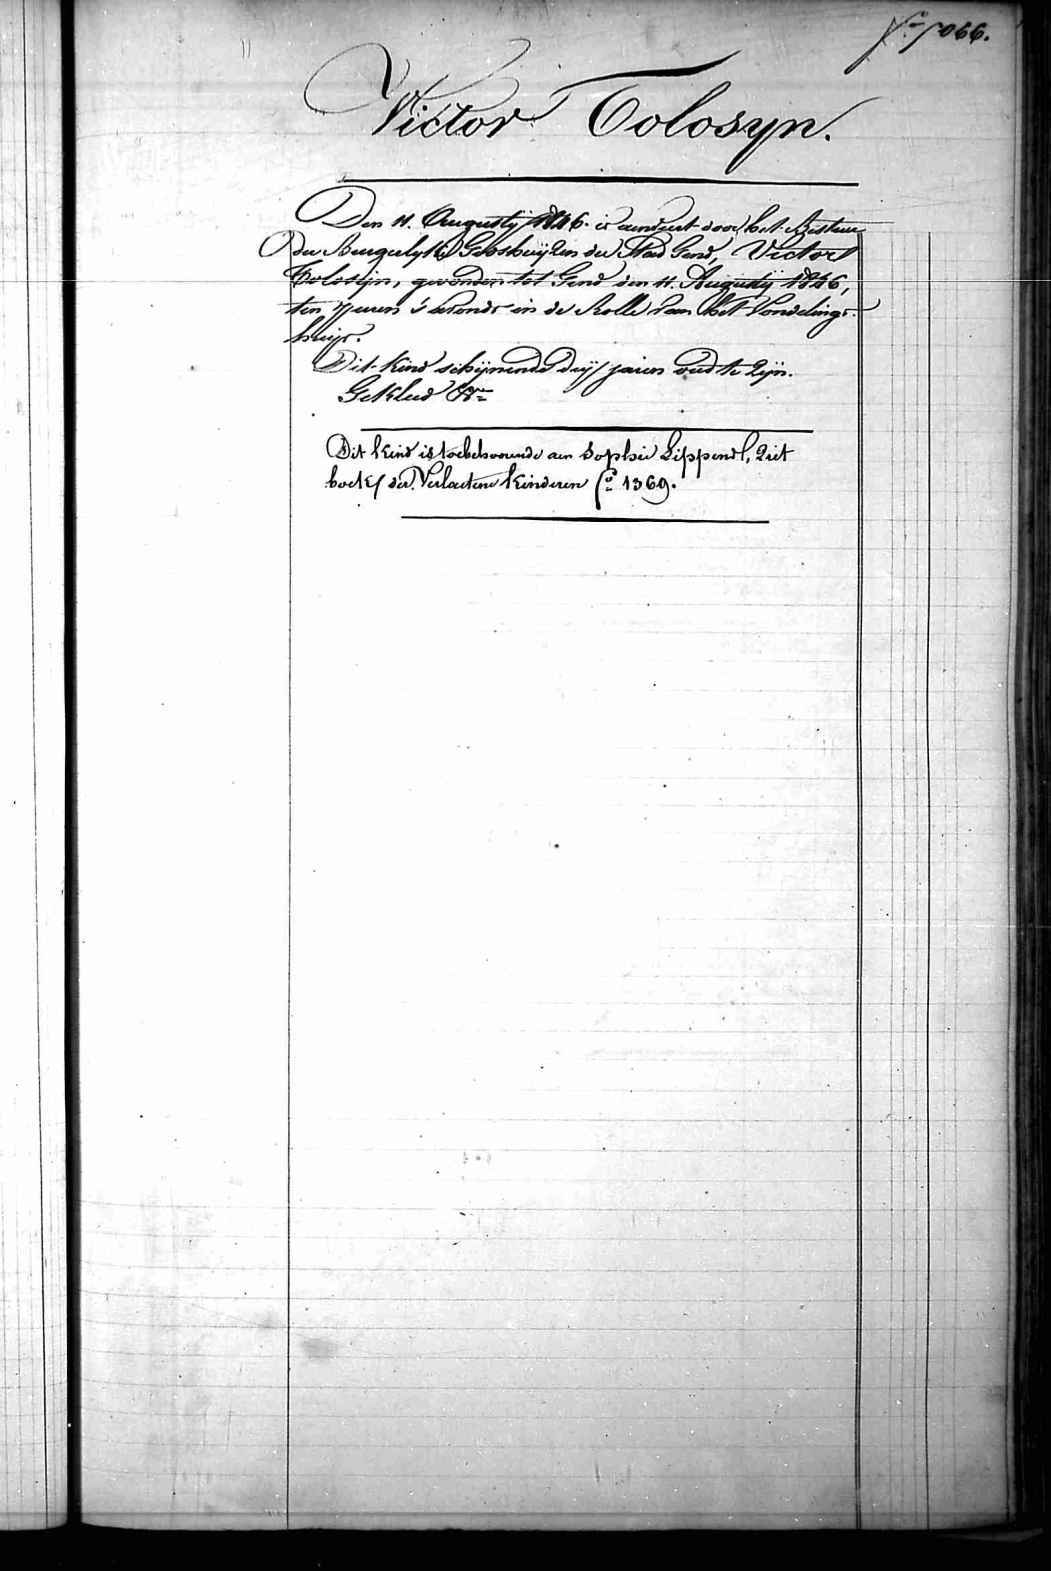 fo 5066.
Victor Tolosyn.
Den 11. Augusty 1846. is aenveert door het Bestuur
der Burgerlyke Godshuyzen der Stad Gend, Victor
Tolosijn, gevonden tot Gend den 11. Augustij 1846,
ten uren 's avonds in de Rolle van het Vondelings-
huijs.
Dit kind schijnende dry jaren oud te zijn.
Gekleed &a
Dit kind is toebehoorende aen Sophie Lippens, ziet
boek der Verlaetene kinderen fo 1369.